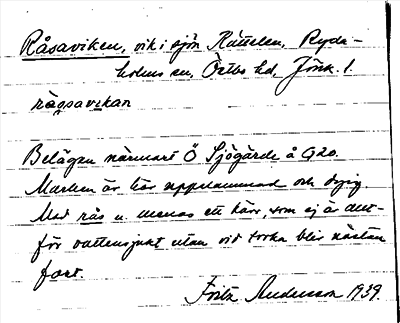 Råsaviken, vik i sjön Rattelen, Ryda-
holms sn, Östbo hd, Jönk. l.
rågsavikan
Belägen närmast Ö Sjögärde å G20.
Marken är här uppslammad och dyig.
Med rås u. menas ett kärr, som ej är allt-
för vattensjukt utan vid torka blir nästan
fast.
Fritz Andersson 1939.